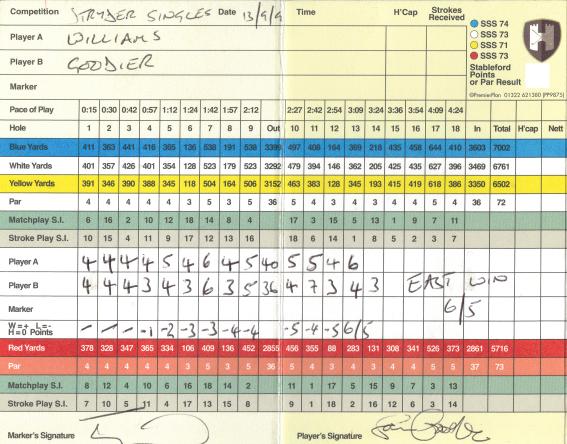 Competition STRYDER SINGLES Date 13/9/9 Time H'Cap Strokes Received
Player A WILLIAMS
Player B GOODIER
Marker
SSS 74
SSS 73
SSS 71
SSS 73
Stableford Points or Par Result
©PremierPlan 01322 621380 (PP9875)
Pace of Play 0:15 0:30 0:42 0:57 1:12 1:24 1:42 1:57 2:12 2:27 2:42 2:54 3:09 3:24 3:36 3:54 4:09 4:24
Hole 1 2 3 4 5 6 7 8 9 Out 10 11 12 13 14 15 16 17 18 In Total H'cap Nett
Blue Yards 411 363 441 416 365 136 538 191 538 3399 497 408 164 369 218 435 458 644 410 3603 7002
White Yards 401 357 426 401 354 128 523 179 523 3292 479 394 146 362 205 425 435 627 396 3469 6761
Yellow Yards 391 346 390 388 345 118 504 164 506 3152 463 383 128 345 193 415 419 618 386 3350 6502
Par 4 4 4 4 4 3 5 3 5 36 5 4 3 4 3 4 4 5 4 36 72
Matchplay S.I. 6 16 2 10 12 18 14 8 4 17 3 15 5 13 1 9 7 11
Stroke Play S.I. 10 15 4 11 9 17 12 13 16 18 6 14 1 8 5 2 3 7
Player A 4 4 4 4 5 4 6 4 5 40 5 5 4 6
Player B 4 4 4 3 4 3 6 3 5 36 4 7 3 4 3 EASY WIN
Marker 6/5
W=+ L=- H=0 Points - - - -1 -2 -3 -3 -4 -4 -5 -4 -5 6/5
Red Yards 378 328 347 365 334 106 409 136 452 2855 456 355 88 283 131 308 341 526 373 2861 5716
Par 4 4 4 4 4 3 5 3 5 36 5 4 3 4 3 4 4 5 4 37 73
Matchplay S.I. 8 12 4 10 6 16 18 14 2 11 1 17 5 15 9 7 3 13
Stroke Play S.I. 7 10 5 11 4 17 13 15 8 9 1 18 2 16 12 6 3 14
Marker's Signature Player's Signature